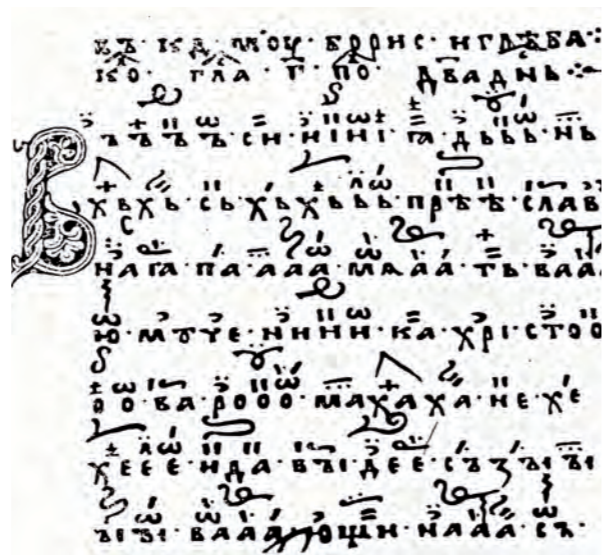 въ · кд · моу · борис · и глѣба ⁘
ко · гла · г · по · два днь ⁘
Въъъъ · си · иiнi · га · дььь · нь
хъхь · сь · хьхььь · прѣѣ · слав
нага · па · ааа · мааа · ть · ваaa
ю · моуче · нини · ка · хрi · стоо
оо · ва · рооо · махаха · не · хе
хеее · и да · въı · дее · съ зъı ъı
ъı ъı · вааа · ощи · нааа · съ ·